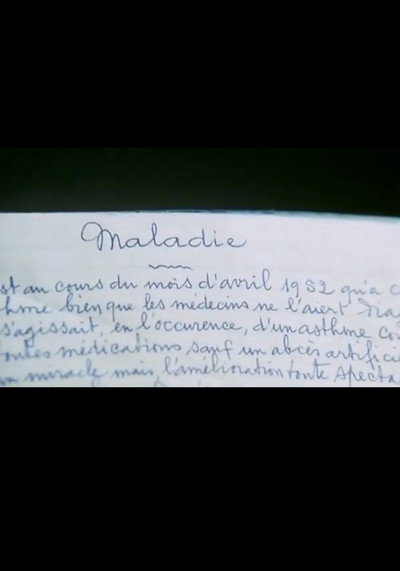 Maladie
st au cours du mois d'avril 1952 qu'a c
hme bien que les médecins ne l'aient diag
s'agissait, en l'occurence, d'un asthme co
outes médications sauf un abcès artifici
un miracle mais l'amélioration toute specta